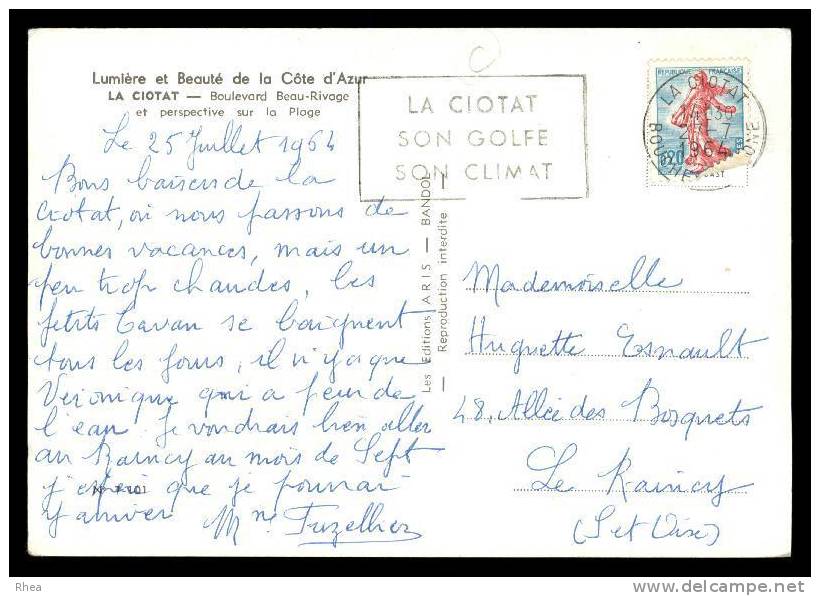 Lumière et Beauté de la Côte d'Azur
LA CIOTAT — Boulevard Beau-Rivage
et perspective sur la Plage
Le 25 Juillet 1964
Bons baisers de la
Ciotat, où nous passons de
bonnes vacances, mais un
peu trop chaudes, les
petits Cavan se baignent
tous les jours, il n'y a que
Véronique qui a peur de
l'eau. Je voudrais bien aller
au Raincy au mois de Sept
j'espère que je pourrai
y arriver Mme Fuzellier
Les Editions ARIS — BANDOL
Reproduction interdite
LA CIOTAT
SON GOLFE
SON CLIMAT
REPUBLIQUE FRANÇAISE
0,20
LA CIOTAT
-7
1964
BOUCHES DU RHONE
Mademoiselle
Huguette Esnault
48, Allée des Bosquets
Le Raincy
(S et Oise)
Rhea
www.delcampe.net